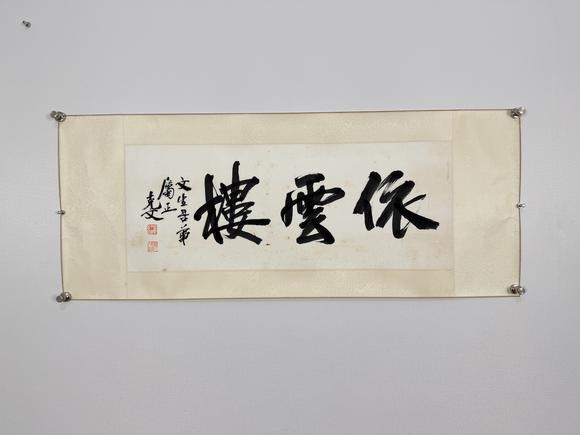 依雲樓
文生吾弟
屬正
克文